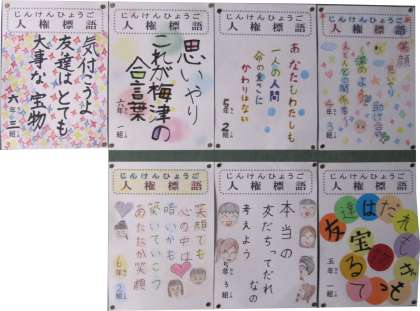 じんけんひょうご
人権標語
気付こうよ
友達はとても
大事な宝物
六年 三組
じんけんひょうご
人権標語
思いやり
これが梅津の
合言葉
六年 組
じんけんひょうご
人権標語
あなたもわたしも
一人の人間
命の重さに
かわりはない
5年 2組
じんけんひょうご
人権標語
笑顔
思いやり
助け合い
じんけんひょうご
人権標語
笑顔でも
心の中は
暗いかも
築いていこう
あたたか笑顔
七年 2組
じんけんひょうご
人権標語
本当の
友だちってだれ
なの
考えよう
じんけんひょうご
人権標語
友達はだれ
宝
五年 一組